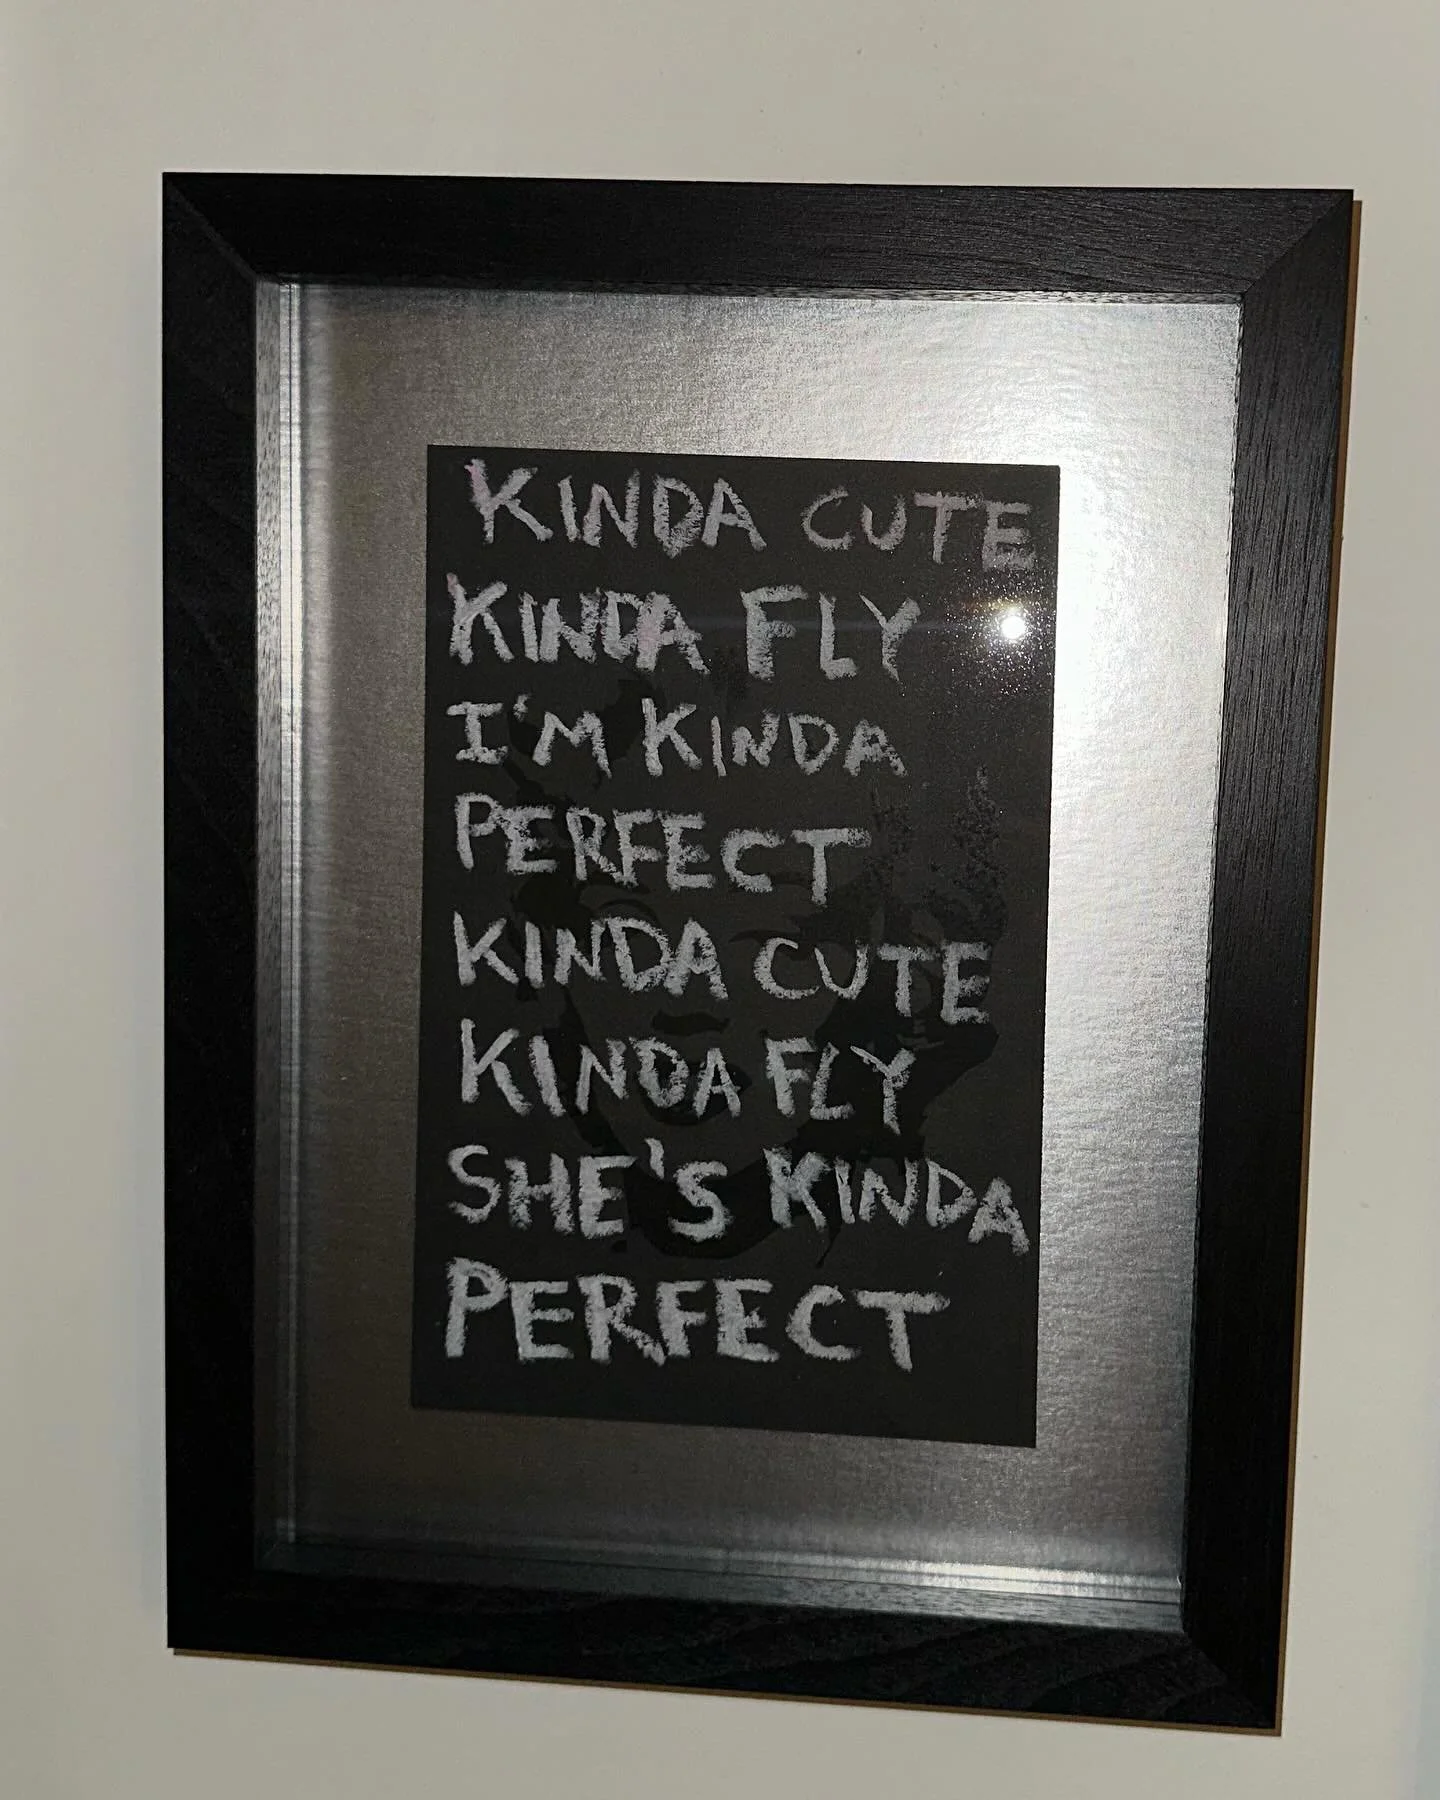 KINDA CUTE
KINDA FLY
I'M KINDA
PERFECT
KINDA CUTE
KINDA FLY
SHE'S KINDA
PERFECT